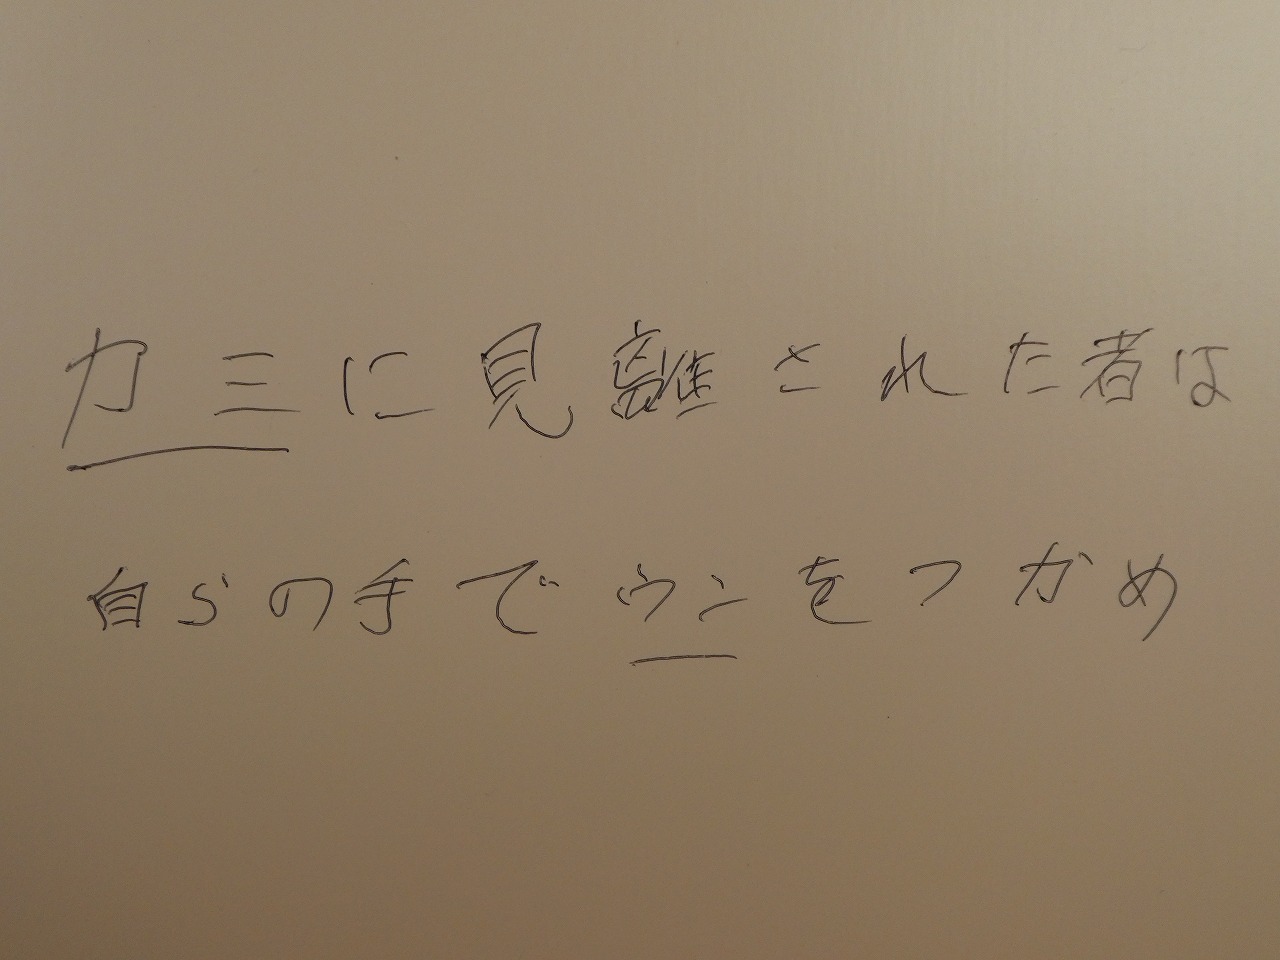 カミに見離された者は
自らの手でウンをつかめ